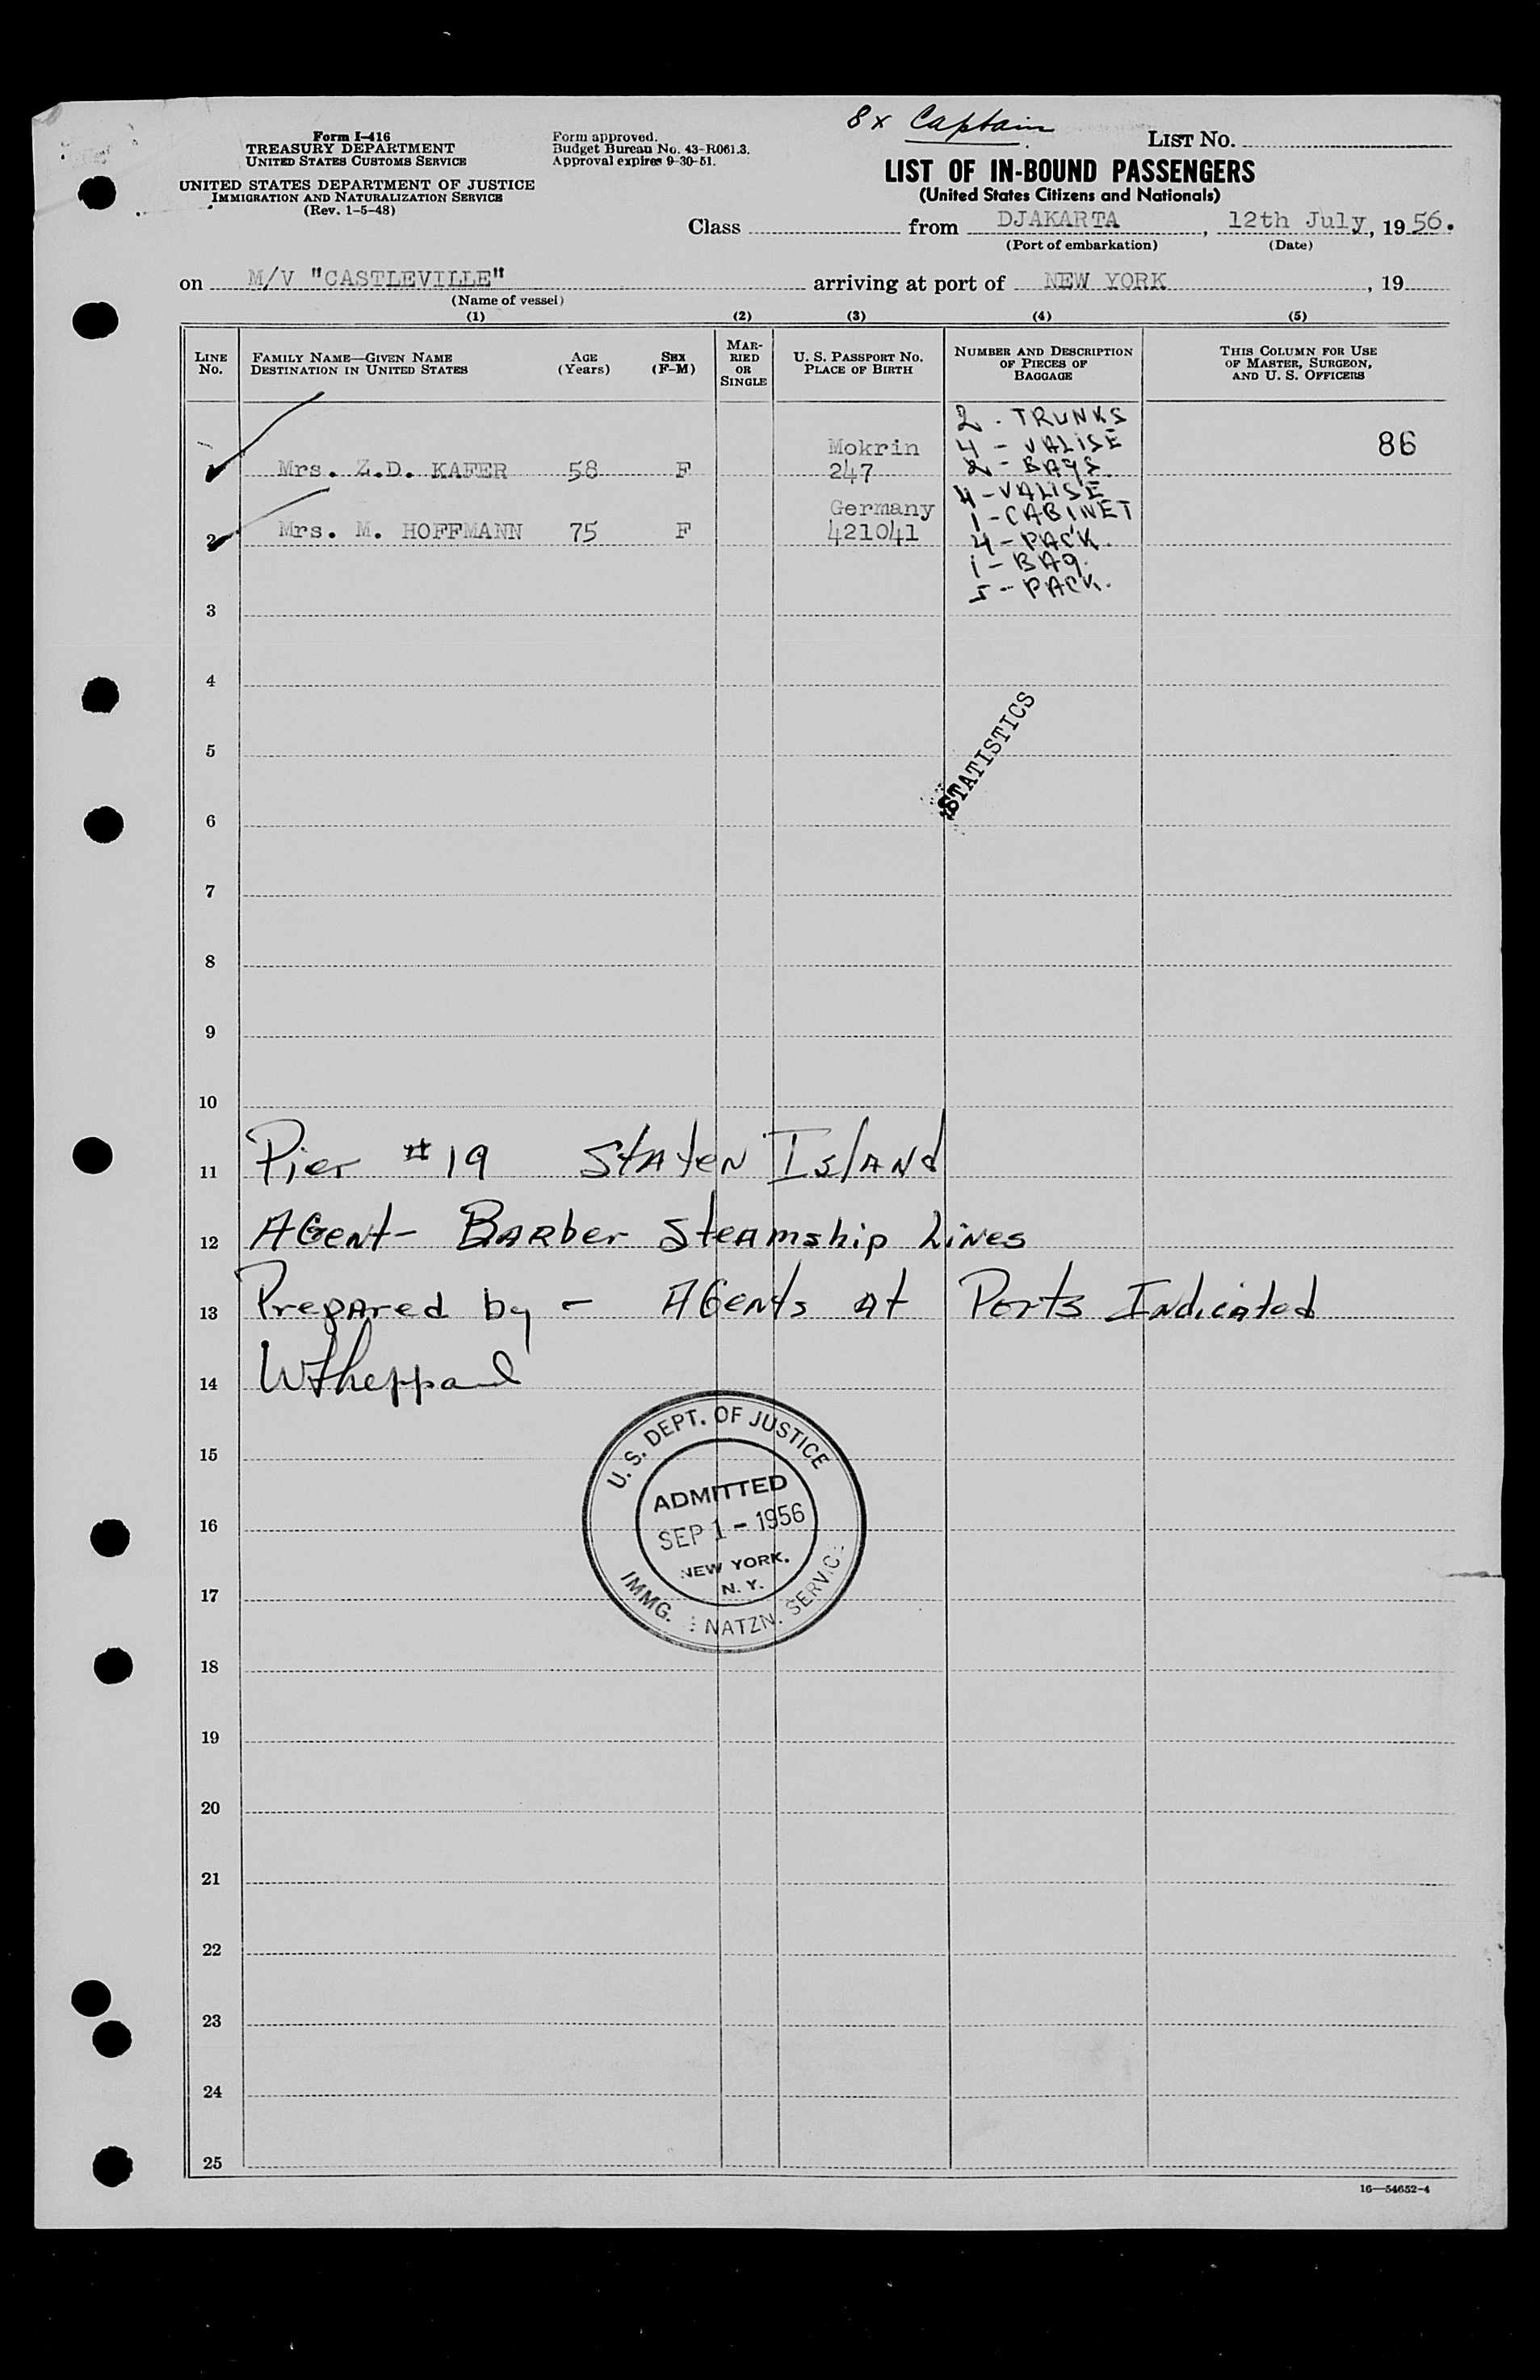 8x Captain
Form I-416
TREASURY DEPARTMENT
UNITED STATES CUSTOMS SERVICE
UNITED STATES DEPARTMENT OF JUSTICE
IMMIGRATION AND NATURALIZATION SERVICE
(Rev. 1-5-48)
Form approved.
Budget Bureau No. 43-R061.3.
Approval expires 9-30-51.
LIST No.
LIST OF IN-BOUND PASSENGERS
(United States Citizens and Nationals)
Class from DJAKARTA, 12th July, 1956.
(Port of embarkation) (Date)
on M/V "CASTLEVILLE" arriving at port of NEW YORK, 19
(Name of vessel)
(1) (2) (3) (4) (5)
LINE No.
FAMILY NAME—GIVEN NAME
DESTINATION IN UNITED STATES
AGE (Years)
SEX (F-M)
MARRIED OR SINGLE
U. S. PASSPORT No.
PLACE OF BIRTH
NUMBER AND DESCRIPTION OF PIECES OF BAGGAGE
THIS COLUMN FOR USE OF MASTER, SURGEON, AND U. S. OFFICERS
2 - TRUNKS
Mokrin 4 - VALISE 86
1 Mrs. Z.D. KAFER 58 F 247 2 - BAGS
4 - VALISE
Germany 1 - CABINET
2 Mrs. M. HOFFMANN 75 F 421041 4 - PACK.
1 - BAG.
5 - PACK.
3
4
STATISTICS
5
6
7
8
9
10
11 Pier #19 Staten Island
12 Agent- Barber Steamship Lines
13 Prepared by - Agents at Ports Indicated
14 WSheppard
15
16
17
U. S. DEPT. OF JUSTICE
ADMITTED
SEP 1 - 1956
NEW YORK, N. Y.
IMMG. NATZN. SERVIC
18
19
20
21
22
23
24
25
16—54652-4